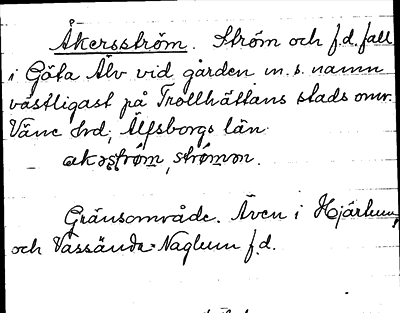 Åkersström. Ström och f.d. fall
i Göta Älv vid gården m. s. namn
västligast på Trollhättans stads omr.
Väne hrd, Älfsborgs län.
akәström, strömәn.
Gränsområde. Även i Hjärtum,
och Vassända-Naglum f.d.